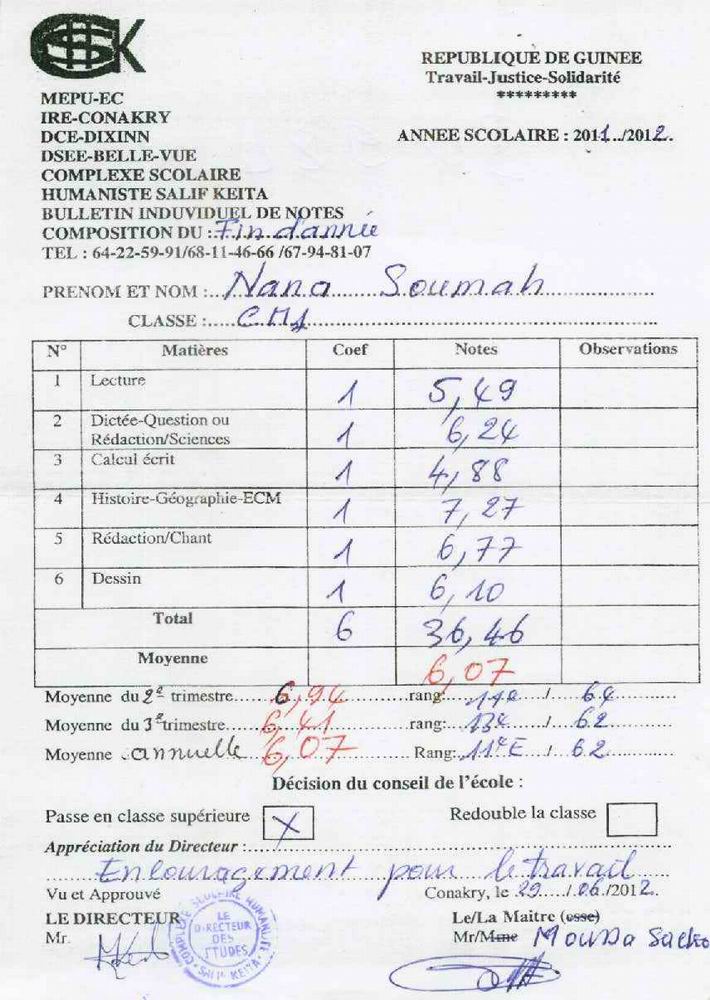 HSK
REPUBLIQUE DE GUINEE
Travail-Justice-Solidarité
*********
MEPU-EC
IRE-CONAKRY
DCE-DIXINN
ANNEE SCOLAIRE : 2011../2012.
DSEE-BELLE-VUE
COMPLEXE SCOLAIRE
HUMANISTE SALIF KEITA
BULLETIN INDUVIDUEL DE NOTES
COMPOSITION DU : Fin d'année
TEL : 64-22-59-91/68-11-46-66 /67-94-81-07
PRENOM ET NOM : Nana Soumah
CLASSE : CM1
N° Matières Coef Notes Observations
1 Lecture 1 5,49
2 Dictée-Question ou Rédaction/Sciences 1 6,24
3 Calcul écrit 1 4,88
4 Histoire-Géographie-ECM 1 7,27
5 Rédaction/Chant 1 6,77
6 Dessin 1 6,10
Total 6 36,46
Moyenne 6,07
Moyenne du 2e trimestre 6,94 rang: 11e / 64
Moyenne du 3e trimestre 6,41 rang: 13e / 62
Moyenne annuelle 6,07 Rang: 11eE / 62
Décision du conseil de l'école :
Passe en classe supérieure X Redouble la classe
Appréciation du Directeur :
Encouragement pour le travail
Vu et Approuvé Conakry, le 29 / 06 /2012
LE DIRECTEUR Le/La Maitre (esse)
Mr. Mr/Mme Mouda
COMPLEXE SCOLAIRE HUMANISTE
LE
DIRECTEUR
DES
ETUDES
SALIF KEITA